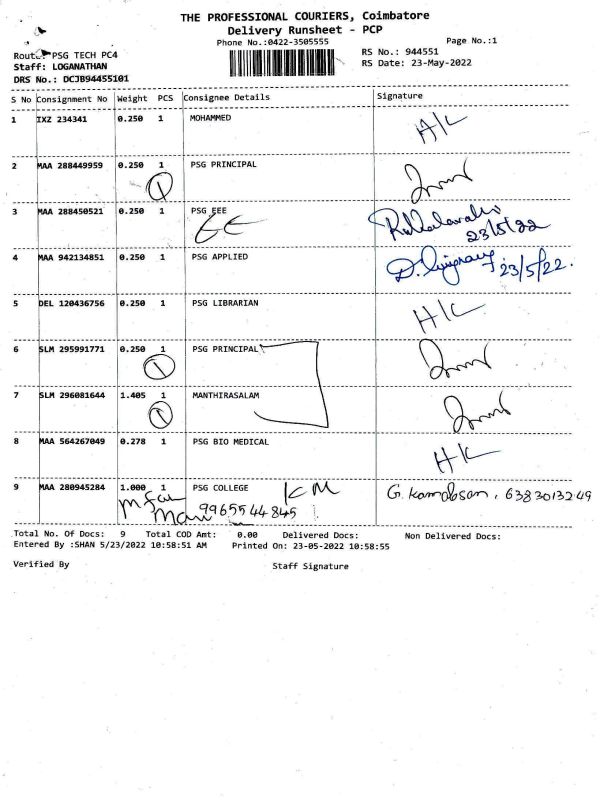 THE PROFESSIONAL COURIERS, Coimbatore
Delivery Runsheet - PCP
Phone No.:0422-3505555
Page No.:1
Route: PSG TECH PC4
RS No.: 944551
Staff: LOGANATHAN
RS Date: 23-May-2022
DRS No.: DCJB94455101
S No Consignment No Weight PCS Consignee Details Signature
1 IXZ 234341 0.250 1 MOHAMMED H/C
2 MAA 288449959 0.250 1 PSG PRINCIPAL
1
3 MAA 288450521 0.250 1 PSG EEE
EE 23/5/22
4 MAA 942134851 0.250 1 PSG APPLIED 23/5/22.
5 DEL 120436756 0.250 1 PSG LIBRARIAN H/C
6 SLM 295991771 0.250 1 PSG PRINCIPAL
1
7 SLM 296081644 1.405 1 MANTHIRASALAM
1
8 MAA 564267049 0.278 1 PSG BIO MEDICAL H/C
9 MAA 280945284 1.000 1 PSG COLLEGE KM G. 6383013249
9965544845
Total No. Of Docs: 9 Total COD Amt: 0.00 Delivered Docs: Non Delivered Docs:
Entered By :SHAN 5/23/2022 10:58:51 AM Printed On: 23-05-2022 10:58:55
Verified By Staff Signature